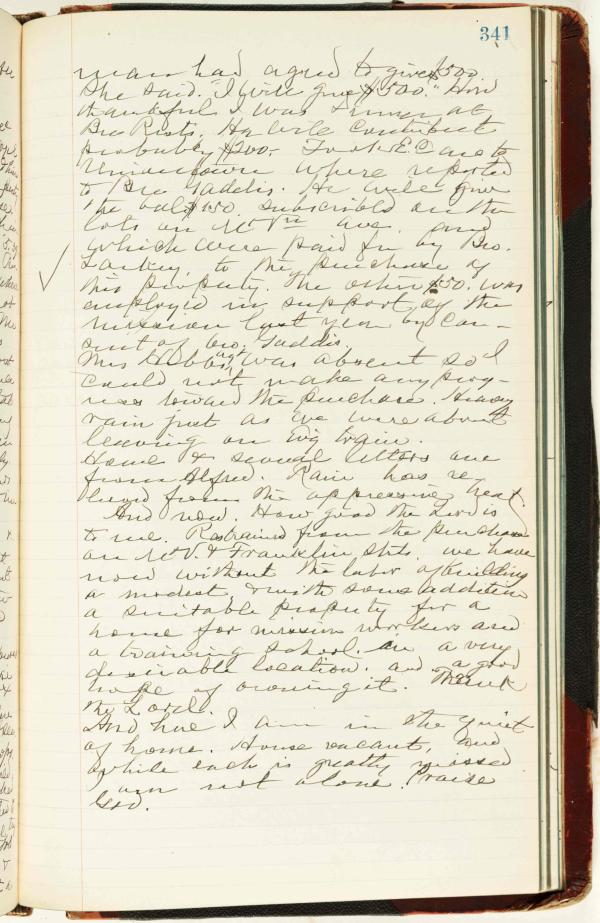 341
man had agreed to give $500
She said. "I will give $500." How
thankful I was. Dinner at
Bro Rists. He will contribute
probably $200. Took E.C. Car to
Uniontown where reported
to Bro Gaddis. He will give
the bal $150. subscribed on the
lots on Mt Vn Ave. and
which were paid in by Bro.
Larkey, to the purchase of
this property. The other $50. was
employed in support of the
mission last year by con-
sent of Bro. Gaddis.
Mrs Hibbs agt was absent so I
could not make any prog-
ress toward the purchase. Heavy
rain just as we were about
leaving on Evg train.
Home & several letters one
from Alfred. Rain has re-
lieved from the oppressive heat.
And now. How good the Lord is
to me. Restrained from the purchase
on Mt V. & Franklin Sts. we have
now without the labor of building
a modest, & with some addition
a suitable property for a
home for mission workers and
a training school. in a very
desirable location. and a good
hope of owning it. Thank
the Lord.
And here I am in the quiet
of home. House vacant, and
while each is greatly missed
I am not alone. Praise
God.